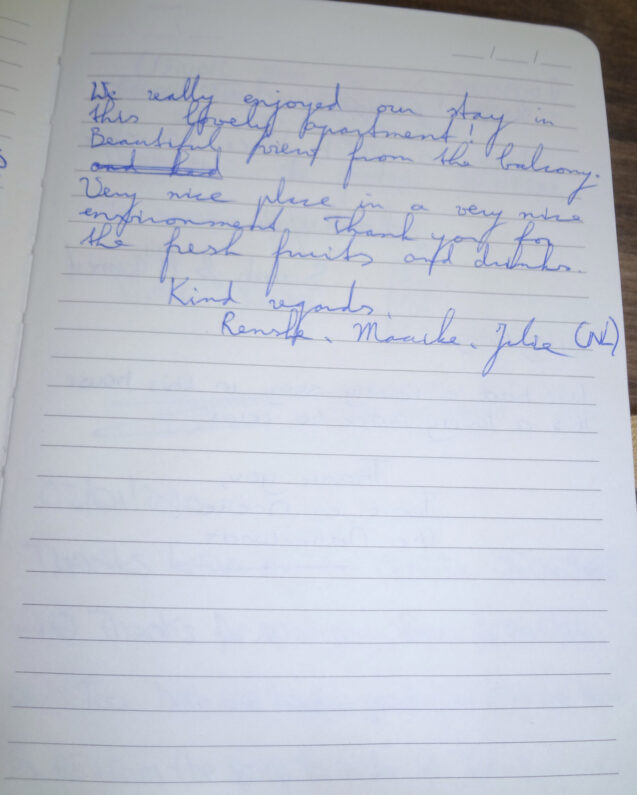 We really enjoyed our stay in
this lovely apartment!
Beautiful view from the balcony.
and had
Very nice place in a very nice
environment. Thank you for
the fresh fruits and drinks.
Kind regards,
Renske, Maaike, Jelie (NL)